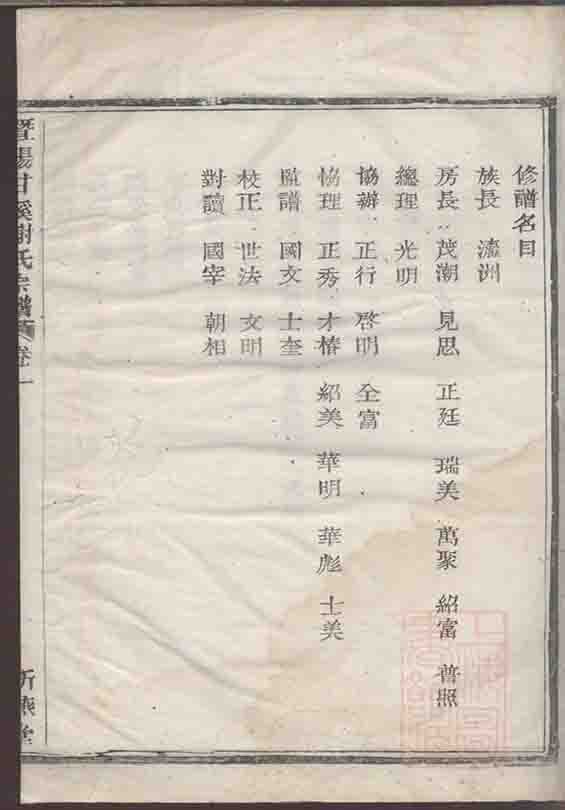 修譜名目
族長 瀛洲
房長 茂潮 見思 正廷 瑞美 萬聚 紹富 普照
總理 光明
協辦 正行 啓明 全富
協理 正秀 才椿 紹美 華明 華彪 士美
監譜 國文 士奎
校正 世法 文明
對讀 國宰 朝相
暨陽甘溪謝氏宗譜 卷一